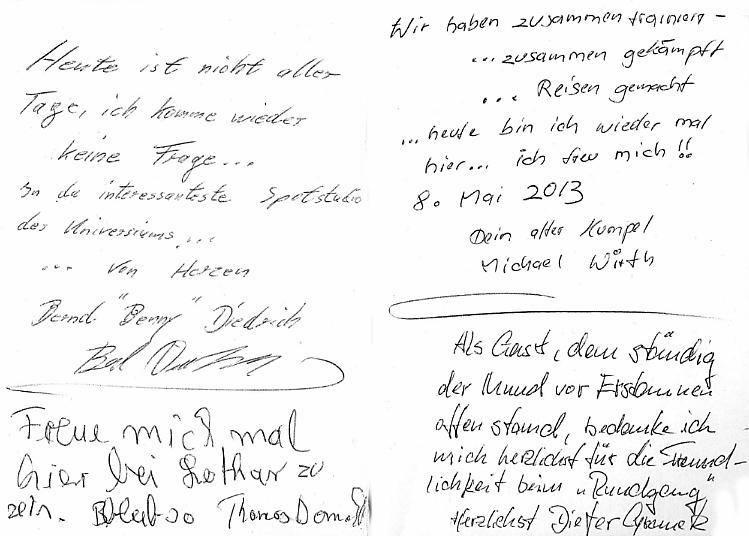 Heute ist nicht aller
Tage, ich komme wieder
keine Frage...
In da interessanteste Spotstudio
des Universiums...
... Von Herzen
Bernd "Benny" Diedrich
Freue mich mal
hier bei Lothar zu
sein. Bleib so Thomas
Wir haben zusammen trainiert –
... zusammen gekämpft
... Reisen gemacht
... heute bin ich wieder mal
hier... ich freu mich!!
8. Mai 2013
Dein alter Kumpel
Michael Wirth
Als Gast, dem ständig
der Mund vor Erstaunen
offen stand, bedanke ich
mich herzlichst für die Freund-
lichkeit beim "Rundgang"
Herzlichst Dieter